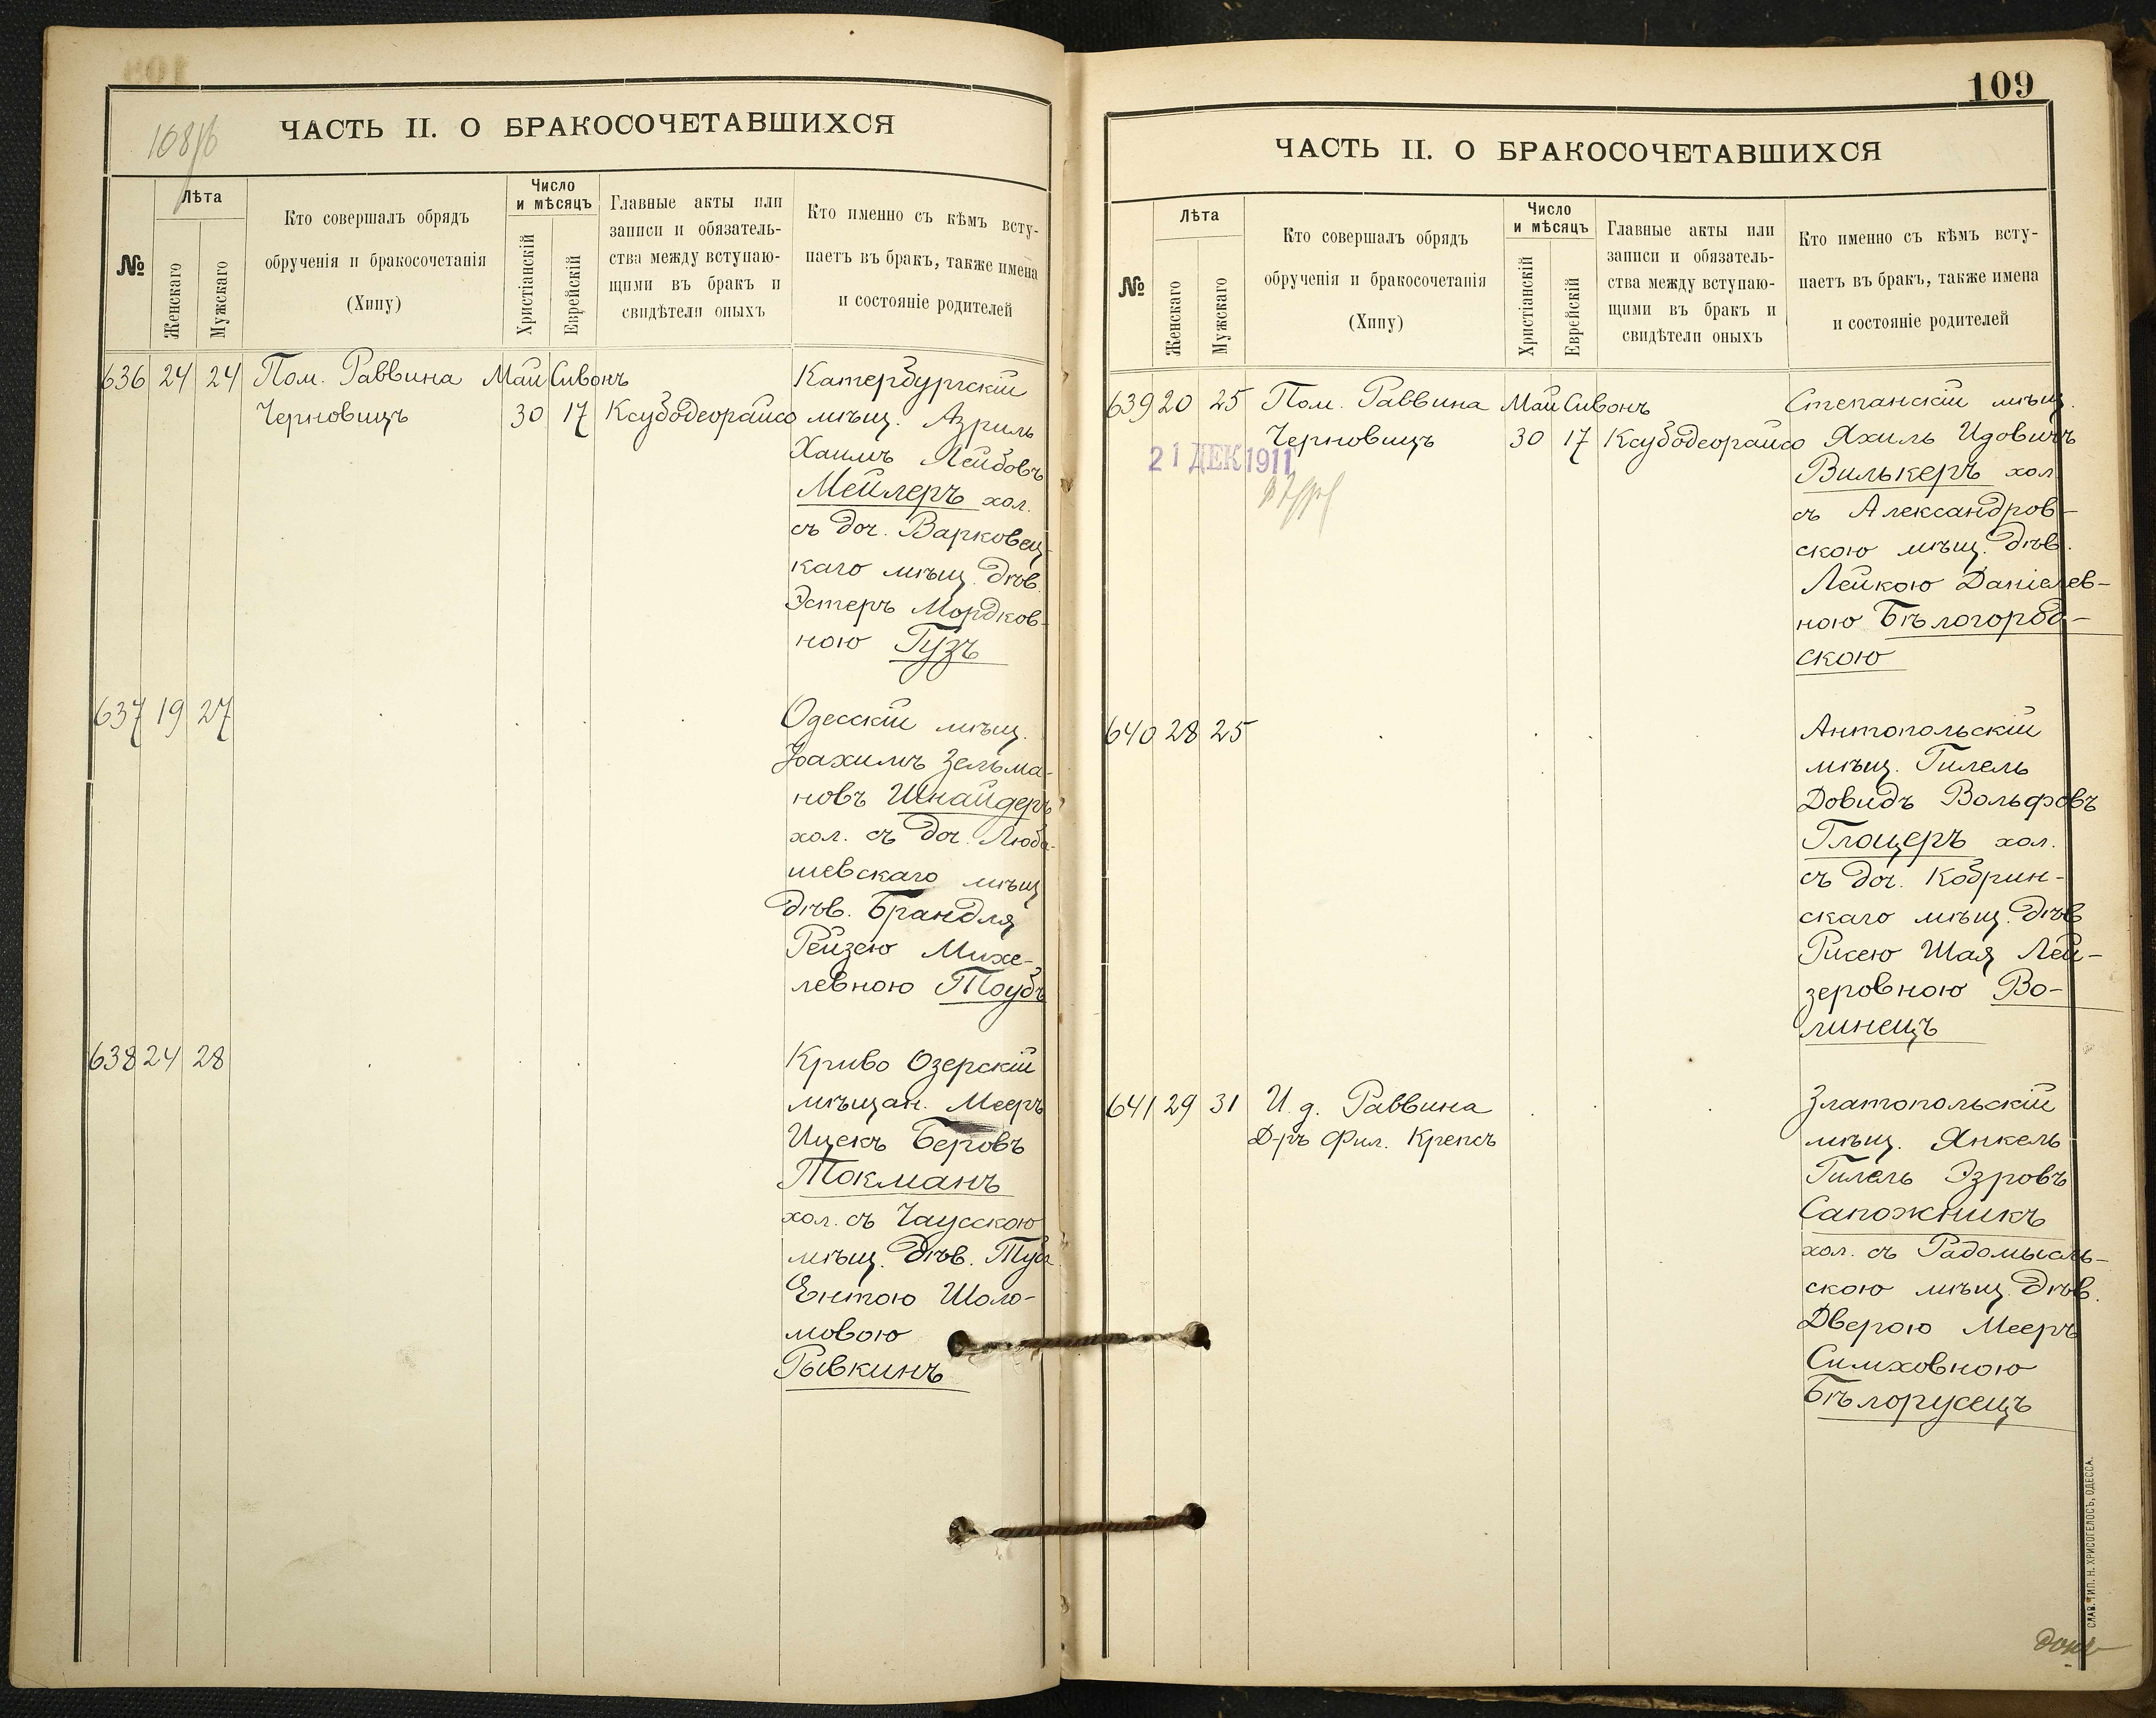 108/б
ЧАСТЬ II. О БРАКОСОЧЕТАВШИХСЯ
№
Лѣта
Женскаго
Мужскаго
Кто совершалъ обрядъ
обрученія и бракосочетанія
(Хипу)
Число
и мѣсяцъ
Христіанскій
Еврейскій
Главные акты или
записи и обязатель-
ства между вступаю-
щими въ бракъ и
свидѣтели оныхъ
Кто именно съ кѣмъ всту-
паетъ въ бракъ, также имена
и состояніе родителей
636 24 24 Пом. Раввина Май Сивонъ Катербургскій
Черновицъ 30 17 Ксубодеорайсо мѣщ. Азриль
Хаимъ Лейбовъ
Мейлеръ хол.
съ доч. Варковец-
каго мѣщ. дѣв.
Эстеръ Мордков-
ною Гузъ
637 19 27 Одесскій мѣщ.
Іоахимъ Зельма-
новъ Шнайдеръ
хол. съ доч. Люба-
шевскаго мѣщ
дѣв. Брандля
Рейзею Михе-
левною Тоубъ
638 24 28 Криво Озерскій
мѣщан. Мееръ
Ицекъ Беровъ
Токманъ
хол. съ Чаусскою
мѣщ. дѣв.
Ентою Шоло-
мовою
Рывкинъ
109
ЧАСТЬ II. О БРАКОСОЧЕТАВШИХСЯ
№
Лѣта
Женскаго
Мужскаго
Кто совершалъ обрядъ
обрученія и бракосочетанія
(Хипу)
Число
и мѣсяцъ
Христіанскій
Еврейскій
Главные акты или
записи и обязатель-
ства между вступаю-
щими въ бракъ и
свидѣтели оныхъ
Кто именно съ кѣмъ всту-
паетъ въ бракъ, также имена
и состояніе родителей
639 20 25 Пом. Раввина Май Сивонъ Степанскій мѣщ.
Черновицъ 30 17 Ксубодеорайсо Яхиль Идовичъ
21 ДЕК 1911
Вилькеръ хол
съ Александров-
скою мѣщ. дѣв.
Лейкою Даніелев-
ною Бѣлогород-
скою
640 28 25 Антопольскій
мѣщ. Гилель
Довидъ Вольфовъ
Глоцеръ хол.
съ доч. Кобрин-
скаго мѣщ. дѣв
Рисею Шая Лей-
зеровною Во-
линецъ
641 29 31 И. д. Раввина Златопольскій
Д-ръ Фил. Крепсъ мѣщ. Янкель
Гилель Эзровъ
Сапожникъ
хол. съ Радомысль-
скою мѣщ. дѣв.
Дверою Мееръ
Симховною
Бѣлорусецъ
СЛАВ. ТИП. Н. ХРИСОГЕЛОСЪ, ОДЕССА.